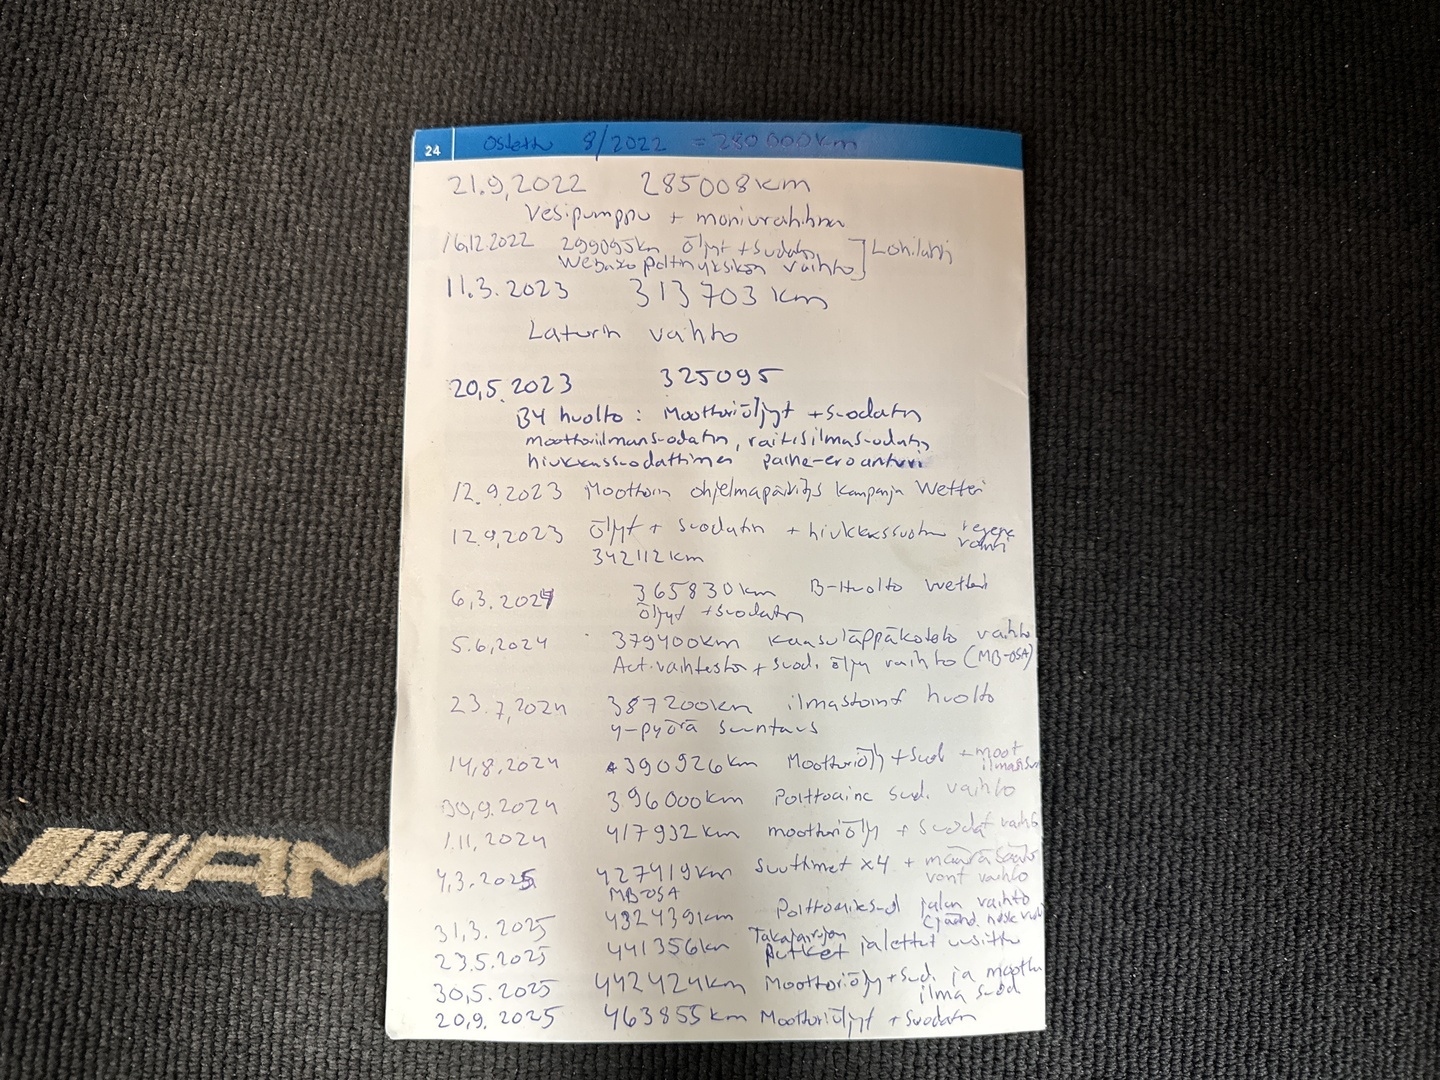 24 Ostettu 8/2022 = 280 000km
21.9,2022 285008km
Vesipumppu + moniurahihna
16.12.2022 299095km öljyt + suodatin
Webasto polttoyksikön vaihto
11.3.2023 313703 km
Laturin vaihto
20,5.2023 325095
B4 huolto: Moottoriöljyt + suodatin
moottorilmansuodatin, raitisilmasuodatin
hiukkassuodattimen paine-eroanturi
12.9.2023 Moottorin ohjelmapäivitys kampanja Wetteri
12.9,2023 öljyt + suodatin + hiukkassuodatin
342112km
6,3.2024 365830km B-Huolto Wetteri
öljyt + suodatin
5.6,2024 379400km Kaasuläppäkotelo vaihto
Aut.vaihteisto + suod. öljy vaihto (MB-OSA)
23.7,2024 387200km ilmastoinf huolto
4-pyörä suuntaus
14,8.2024 390926km Moottoriöljy + suod + moot
ilmansuo
30,9.2024 396000km Polttoaine suod. vaihto
1.11,2024 417932km moottoriöljy + suodat vaihto
4,3.2025 427419km Suuttimet x4 + määräsäätö
vent vaihto
MB-OSA
31,3.2025 432439km Polttoainesuod jalan vaihto
23.5.2025 441356km Takajarrujen
putket ja letkut uusittu
30,5.2025 442424km Moottoriöljy + Suod. ja moottori
ilma suod
20,9.2025 463855km Moottoriöljyt + suodatin
AM